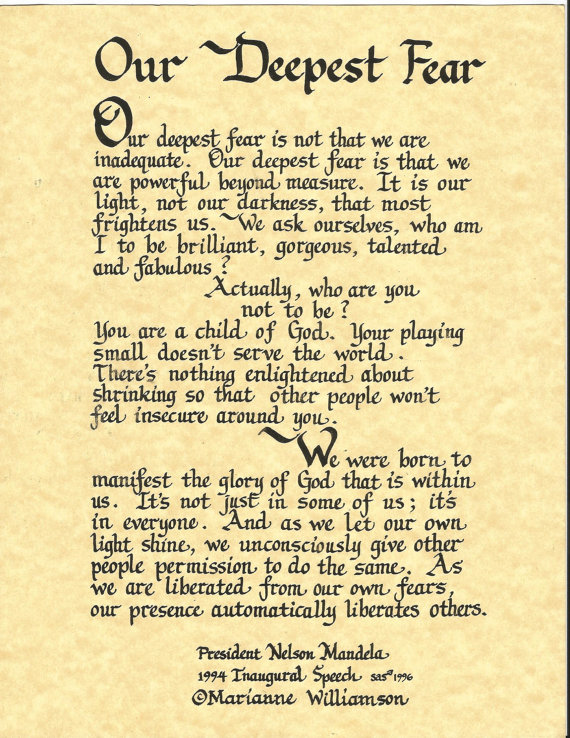 Our Deepest Fear
Our deepest fear is not that we are
inadequate. Our deepest fear is that we
are powerful beyond measure. It is our
light, not our darkness, that most
frightens us. We ask ourselves, who am
I to be brilliant, gorgeous, talented
and fabulous?
Actually, who are you
not to be?
You are a child of God. Your playing
small doesn't serve the world.
There's nothing enlightened about
shrinking so that other people won't
feel insecure around you.
We were born to
manifest the glory of God that is within
us. It's not just in some of us; it's
in everyone. And as we let our own
light shine, we unconsciously give other
people permission to do the same. As
we are liberated from our own fears,
our presence automatically liberates others.
President Nelson Mandela
1994 Inaugural Speech SAS 1996
©Marianne Williamson